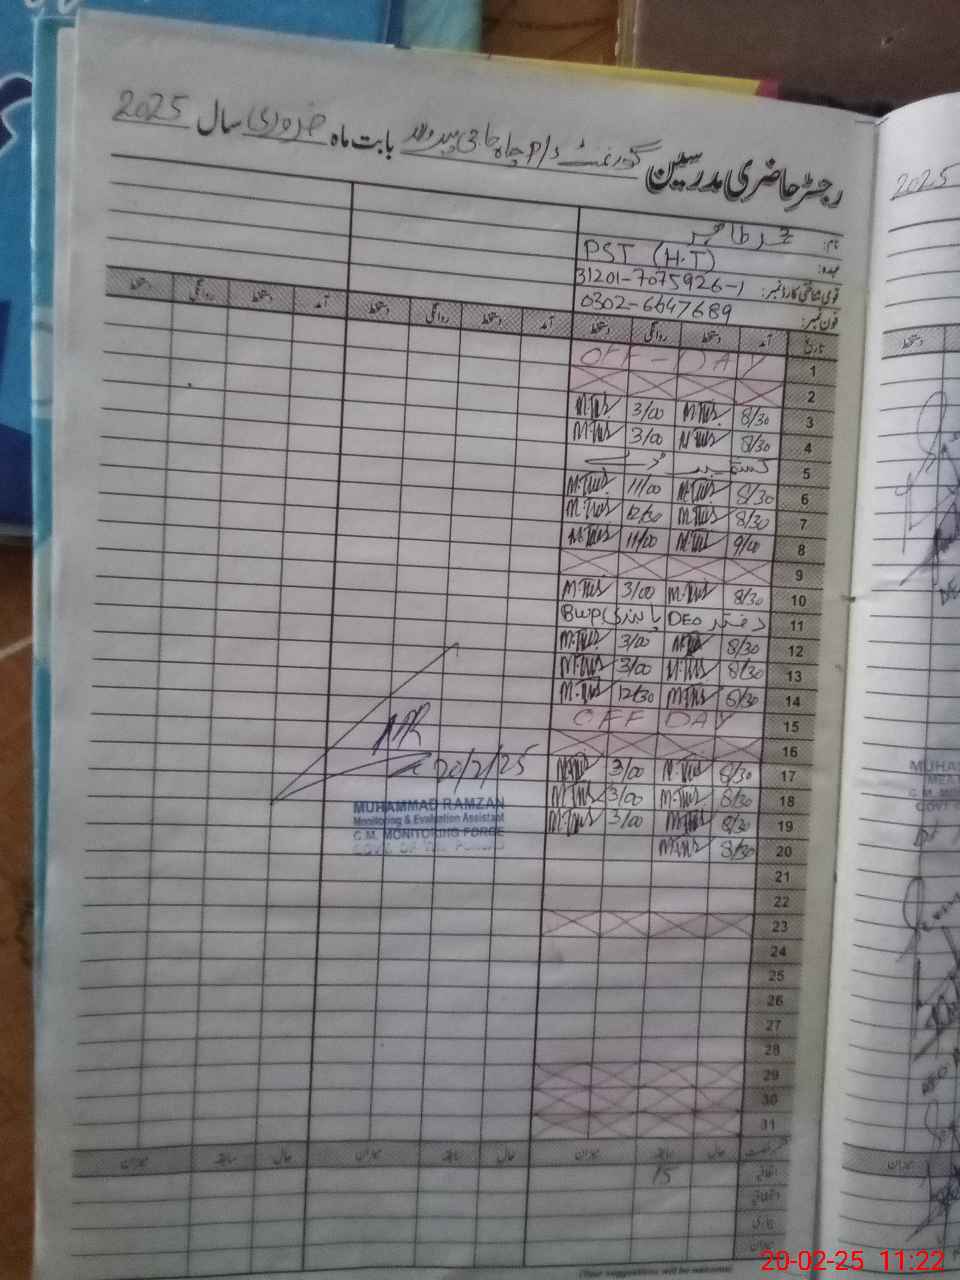 رجسٹر حاضری مدرسین گورنمنٹ p/s چاہ حاجی بابت ماہ فروری سال 2025
نام: محمد طاہر
عہدہ: PST (H.T)
قومی شناختی کارڈ نمبر: 31201-7075926-1
فون نمبر: 0302-6647689
تاریخ آمد دستخط روانگی دستخط آمد دستخط روانگی دستخط آمد دستخط روانگی دستخط
1 OFF-DAY
2
3 8/30 3/00
4 8/30 3/00
5 کشمیر ڈے
6 8/30 11/00
7 8/30 12/30
8 9/00 11/00
9
10 8/30 3/00
11 دفتر DEO BWP
12 8/30 3/00
13 8/30 3/00
14 8/30 12/30
15 OFF DAY
16
17 8/30 3/00
18 8/30 3/00
19 8/30 3/00
20 8/30
21
22
23
24
25
26
27
28
29
30
31
20/2/25
MUHAMMAD RAMZAN
Monitoring & Evaluation Assistant
C.M. MONITORING FORCE
GOVT. OF THE PUNJAB
حال سابقہ میزان حال سابقہ میزان حال سابقہ میزان
اتفاقی 15
میزان
(Your suggestions will be welcome)
2025
20-02-25 11:22